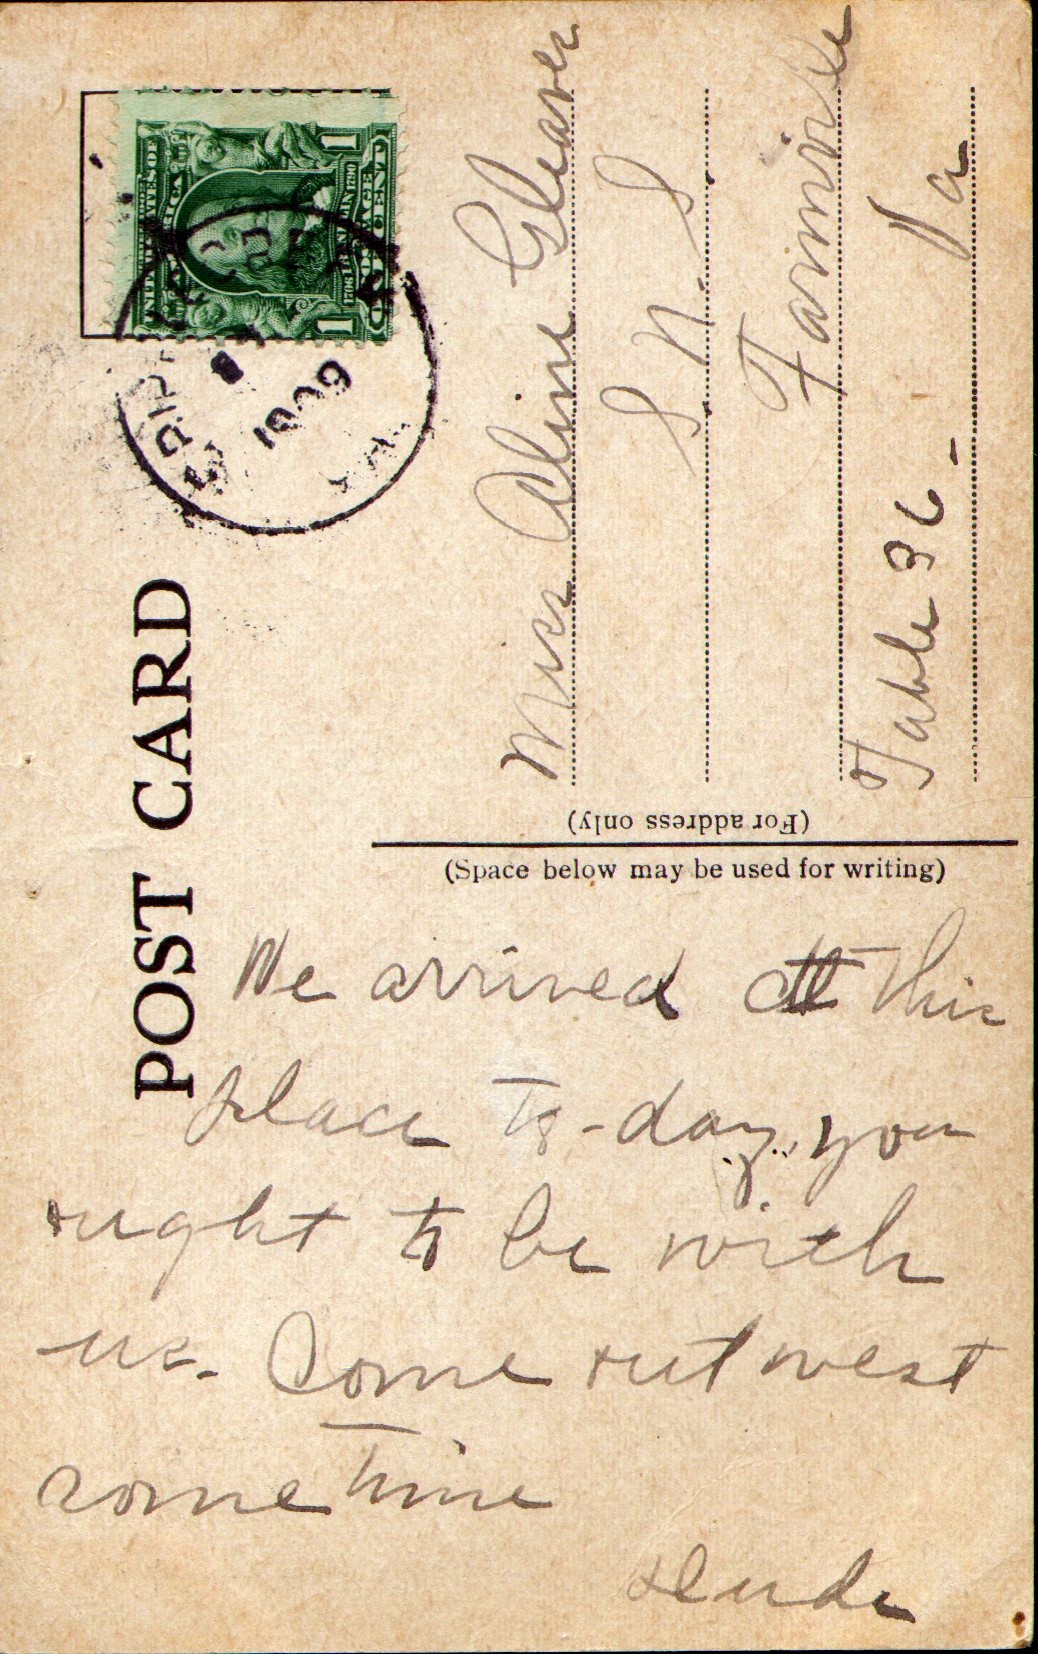 POST CARD
1909
Miss Aline Gleaves
S. N. S.
Farmville
Table 36 - Va
(For address only)
(Space below may be used for writing)
We arrived at this
place to-day, you
ought to be with
us. Come out west
some time